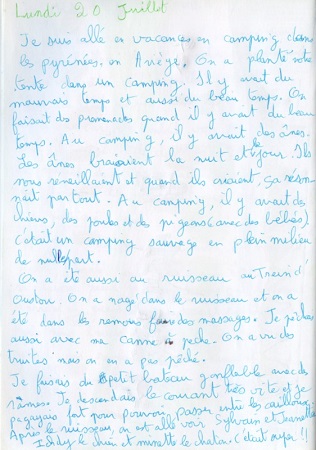 Lundi 20 Juillet
Je suis allé en vacances en camping dans
les pyrénées en Ariège. On a planté notre
tente dans un camping. Il y avait du
mauvais temps et aussi du beau temps. On
faisait des promenades quand il y avait du beau
temps. Au camping, il y avait des ânes.
Les ânes braiaient la nuit et le jour. Ils
nous réveillaient et quand ils criaient, ça réson-
nait partout. Au camping, il y avait des
chiens, des poules et des pigeons (avec des bébés)
c'était un camping sauvage en plein milieu
de nulle part.
On a été aussi au ruisseau au Trein d'
Oustou. On a nagé dans le ruisseau et on a
été dans les remous faire des massages. Je pêchais
aussi avec ma canne à pêche. On a vu des
truites mais on en a pas pêché.
Je faisais du petit bateau gonflable avec des
rames. Je descendais le courant très vite et je
pagayais fort pour pouvoir passer entre les cailloux.
Après le ruisseau, on est allé voir Sylvain et Jeanette
Ididy le chien et minette le chaton. C'était super!!